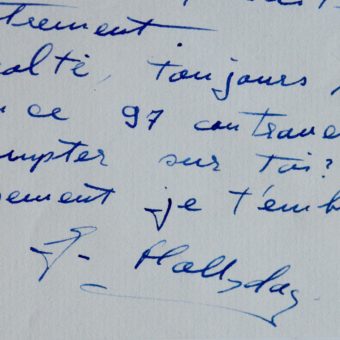 trement
olté, toujours,
ce 97 contrave
mpter sur toi?
ement je t'emb
J- Hallyday